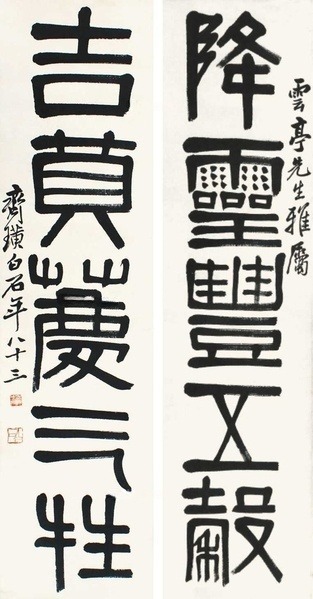 雲亭先生雅屬
降靈豐五穀
吉三牲
齊璜白石年八十三